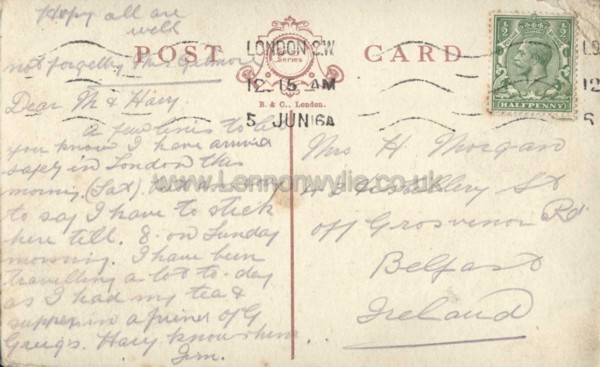 Hope all are
well
not forgetting Mrs
POST CARD
Series
B. & C., London.
LONDON S.W
12.15 AM
5 JUN 16A
HALFPENNY
Dear M & Harry
A few lines to let
you know I have arrived
safely in London this
morning (Sat).
to say I have to stick
here till 8. on Sunday
morning. I have been
travelling a lot to-day
as I had my tea &
supper in a friend of G
Gauge's. Harry knows him.
Jim.
Mrs H. Morgan
Distillery St
off Grosvenor Rd
Belfast
Ireland
www.Lennonwylie.co.uk